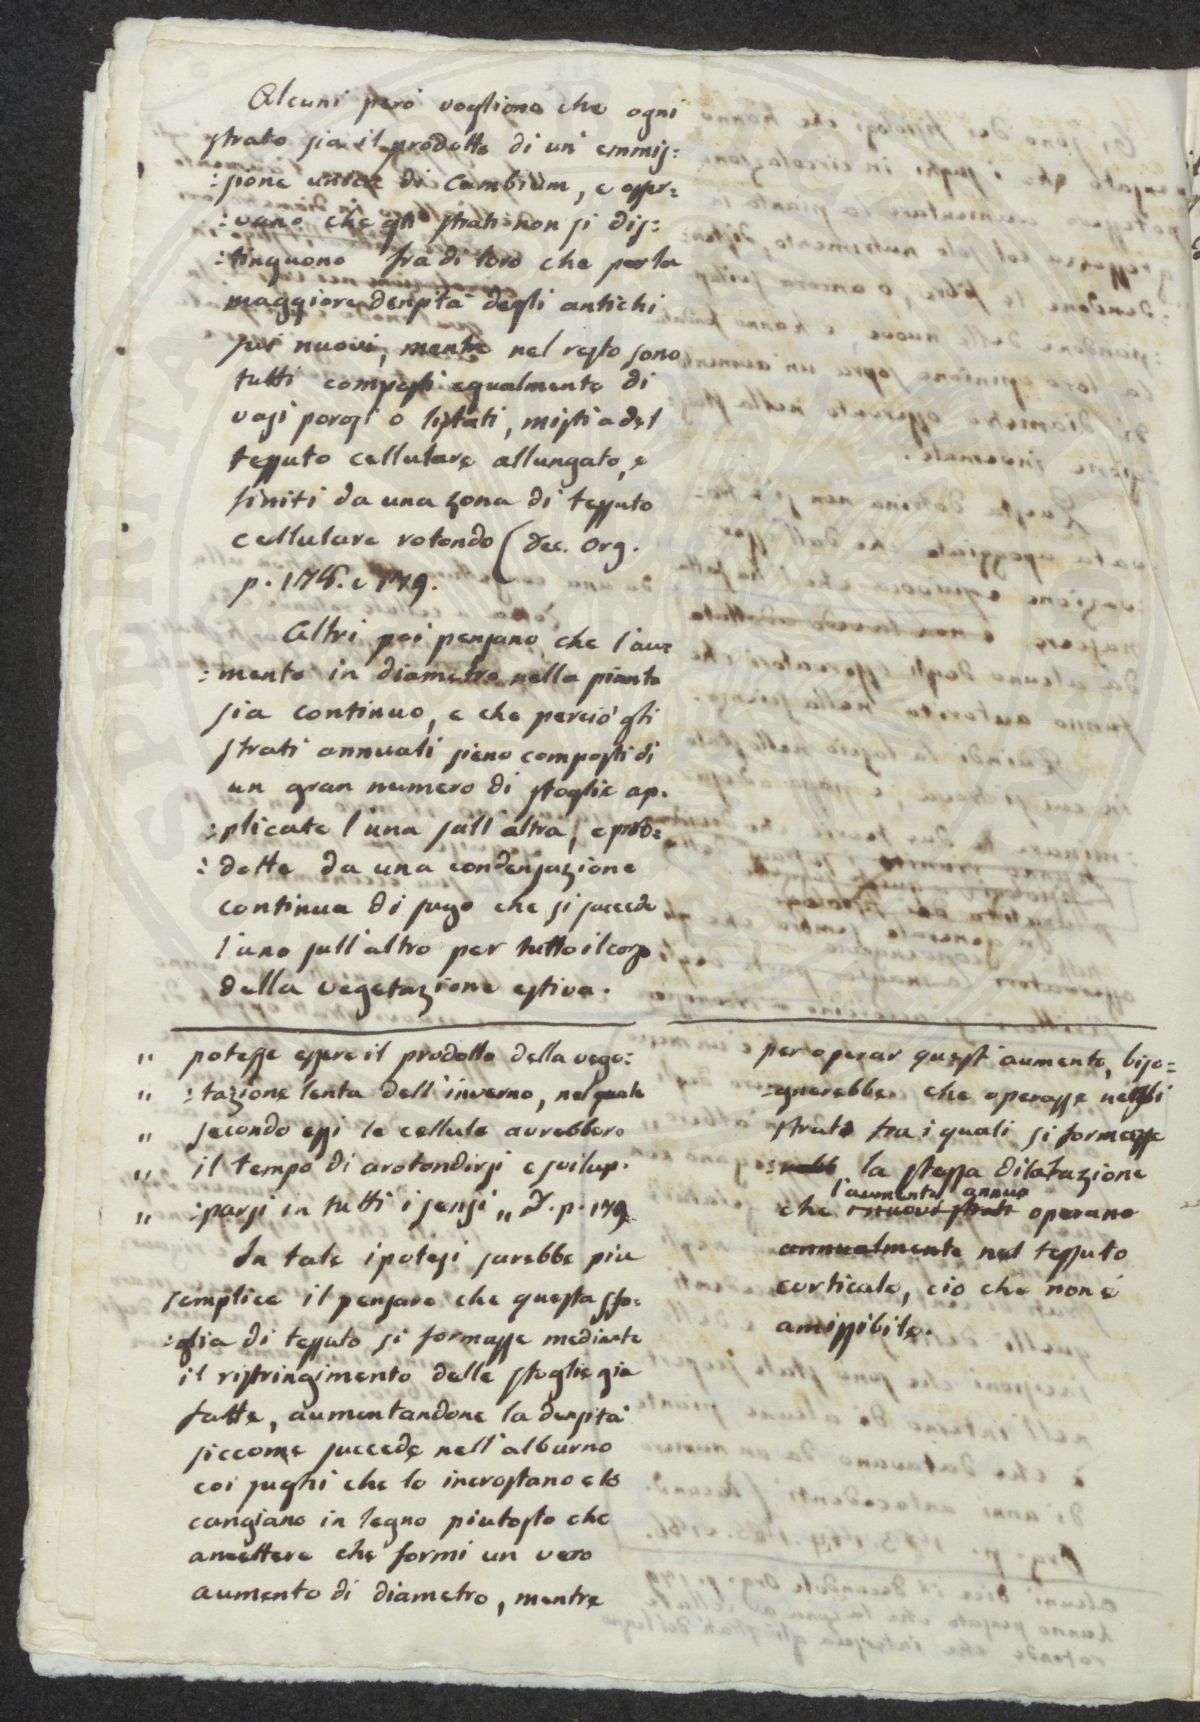 Alcuni però vogliono che ogni
strato sia il prodotto di un' emmis:
:sione unica di Cambium, e osser=
:vano che gli strati non si dis:
:tinguono fra di loro che per la
maggiore densità degli antichi
sui nuovi, mentre nel resto sono
tutti composti egualmente di
vasi porosi o listati, misti a del
tessuto cellulare allungato, e
finiti da una zona di tessuto
cellulare rotondo (Dec. Org.
p. 178. e 179.
Altri poi pensano che l'au=
:mento in diametro nella pianta
sia continuo, e che perciò gli
strati annuali sieno composti di
un gran numero di sfoglie ap.
:plicate l'una sull'altra, e pro=
:dotte da una condensazione
continua di sugo che si succede
l'uno sull'altro per tutto il corso
della vegetazione estiva.
" potesse essere il prodotto della vege:
" :tazione lenta dell'inverno, nel quale
" secondo essi le cellule avrebbero
" il tempo di arotondirsi e svilup.
" :parsi in tutti i sensi „ D. p. 179
In tale ipotesi sarebbe più
semplice il pensare che questa sfo:
:glia di tessuto si formasse mediante
il ristringimento delle sfoglie già
fatte, aumentandone la densità
siccome succede nell'alburno
coi sughi che lo incrostano e lo
cangiano in legno piutosto che
amettere che formi un vero
aumento di diametro, mentre
per operar quest'aumento, biso=
:gnerebbe che operasse negli
strati fra i quali si formasse
la stessa dilatazione
l'aumento annuo
che i nuovi strati operano
annualmente nel tessuto
corticale, ciò che non è
amissibile.